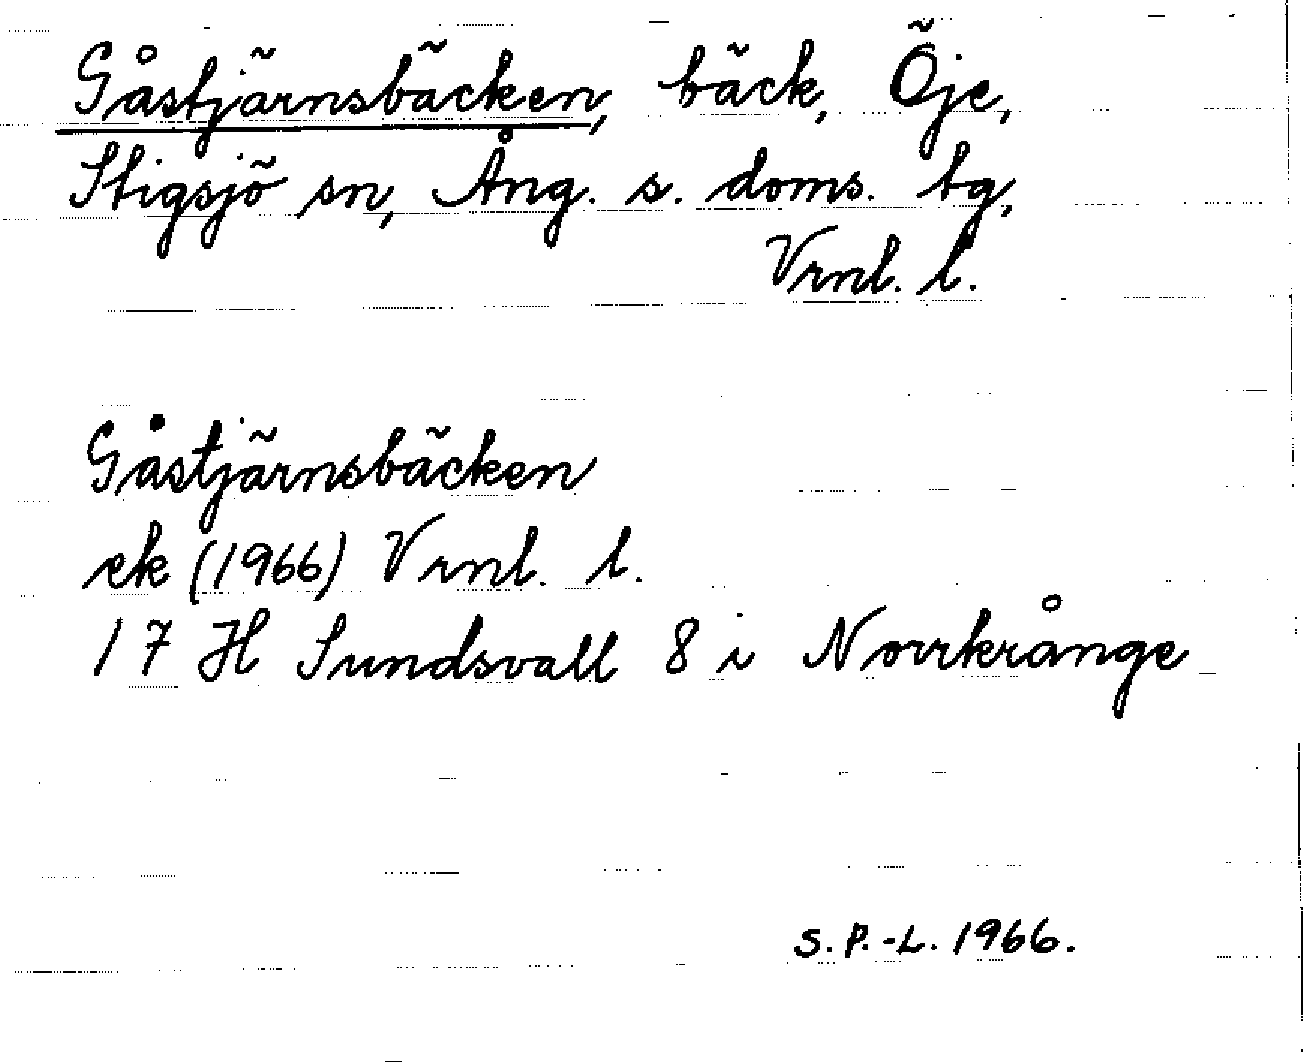 Gåstjärnsbäcken, bäck, Öje,
Stigsjö sn, Ång. s. doms. tg,
Vrnl. l.
Gåstjärnsbäcken
ek (1966) Vrnl. l.
17 H Sundsvall 8 i Norrkrånge
S. P.-L. 1966.